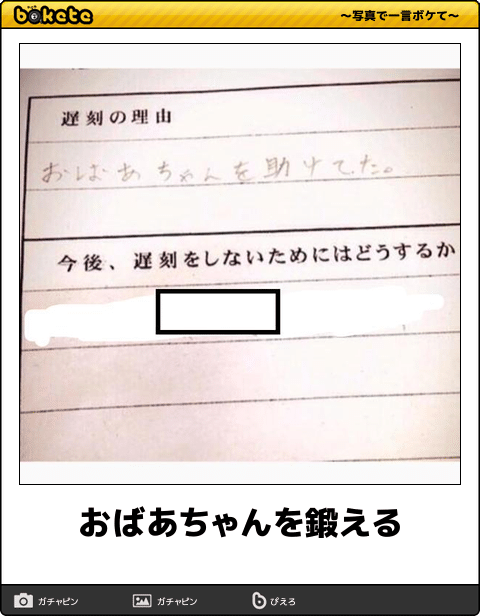 bokete
〜写真で一言ボケて〜
遅刻の理由
おばあちゃんを助けてた。
今後、遅刻をしないためにはどうするか
おばあちゃんを鍛える
ガチャピン
ガチャピン
ぴえろ